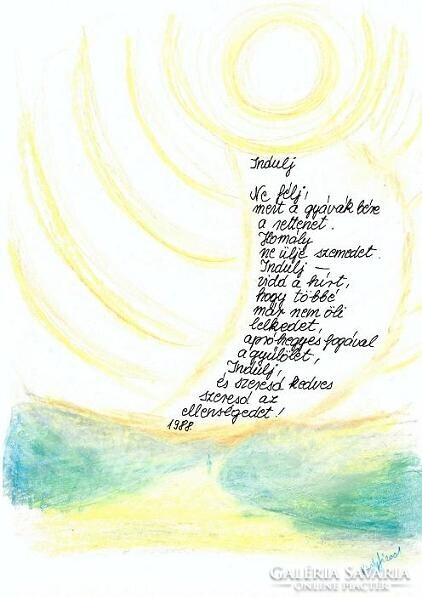 Indulj
Ne félj,
mert a gyávák bére
a rettenet.
Homály
ne ülje szemedet.
Indulj –
vidd a hírt,
hogy többé
már nem öli
lelkedet,
apró hegyes fogával
a gyűlölet,
Indulj,
és szeresd kedves
szeresd az
ellenségedet!
1988
GALÉRIA SAVARIA
ONLINE PIACTÉR